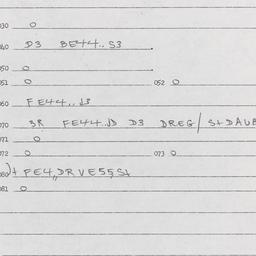 030 0
040 D3 BE44..S3
050 0
051 0 052 0
060 FE44..JS
070 3R FE44..JD D3 DREG/S+DAUB
071 0
072 0 073 0
080 )+ FE4,,DRVE55S+
081 0